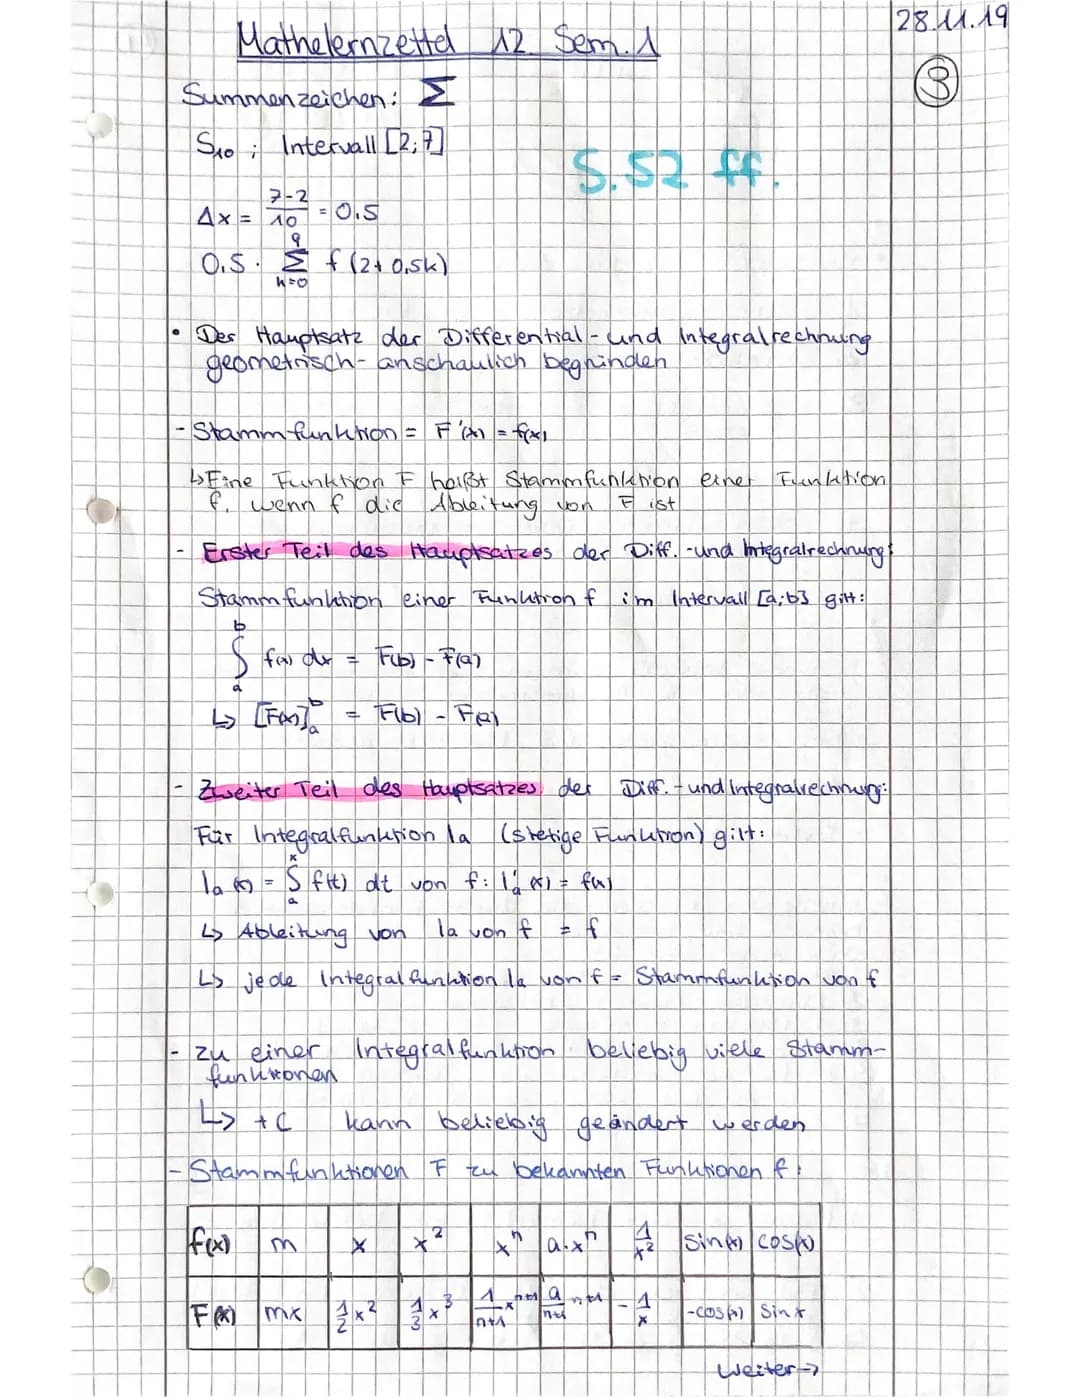 28.11.19
Mathelernzettel 12. Sem. 1
3
Summenzeichen: Σ
S10 ; Intervall [2;7]
S. 52 ff.
Δx = 7-2/10 = 0,5
0,5 · 9 Σ k=0 f (2+0,5k)
• Der Hauptsatz der Differential- und Integralrechnung
geometrisch-anschaulich begründen
- Stammfunktion = F'(x) = f(x)
↳ Eine Funktion F heißt Stammfunktion einer Funktion
f, wenn f die Ableitung von F ist
- Erster Teil des Hauptsatzes der Diff.-und Integralrechnung:
Stammfunktion einer Funktion f im Intervall [a;b] gilt:
b ∫ a f(x) dx = F(b) - F(a)
↳ [F(x)]ᵇₐ = F(b) - F(a)
- Zweiter Teil des Hauptsatzes der Diff.-und Integralrechnung:
Für Integralfunktion Ia (stetige Funktion) gilt:
Ia (x) = x ∫ a f(t) dt von f: I'a (x) = f(x)
↳ Ableitung von Ia von f = f
↳ jede Integralfunktion Ia von f = Stammfunktion von f
- zu einer Integralfunktion beliebig viele Stamm-
funktionen
↳ +C kann beliebig geändert werden
- Stammfunktionen F zu bekannten Funktionen f:
f(x) m x x² xⁿ a·xⁿ 1/x² sin(x) cos(x)
F(x) mx 1/2 x² 1/3 x³ 1/n+1 xⁿ⁺¹ a/n+1 ⁿ⁺¹ -1/x -cos(x) sin x
weiter→